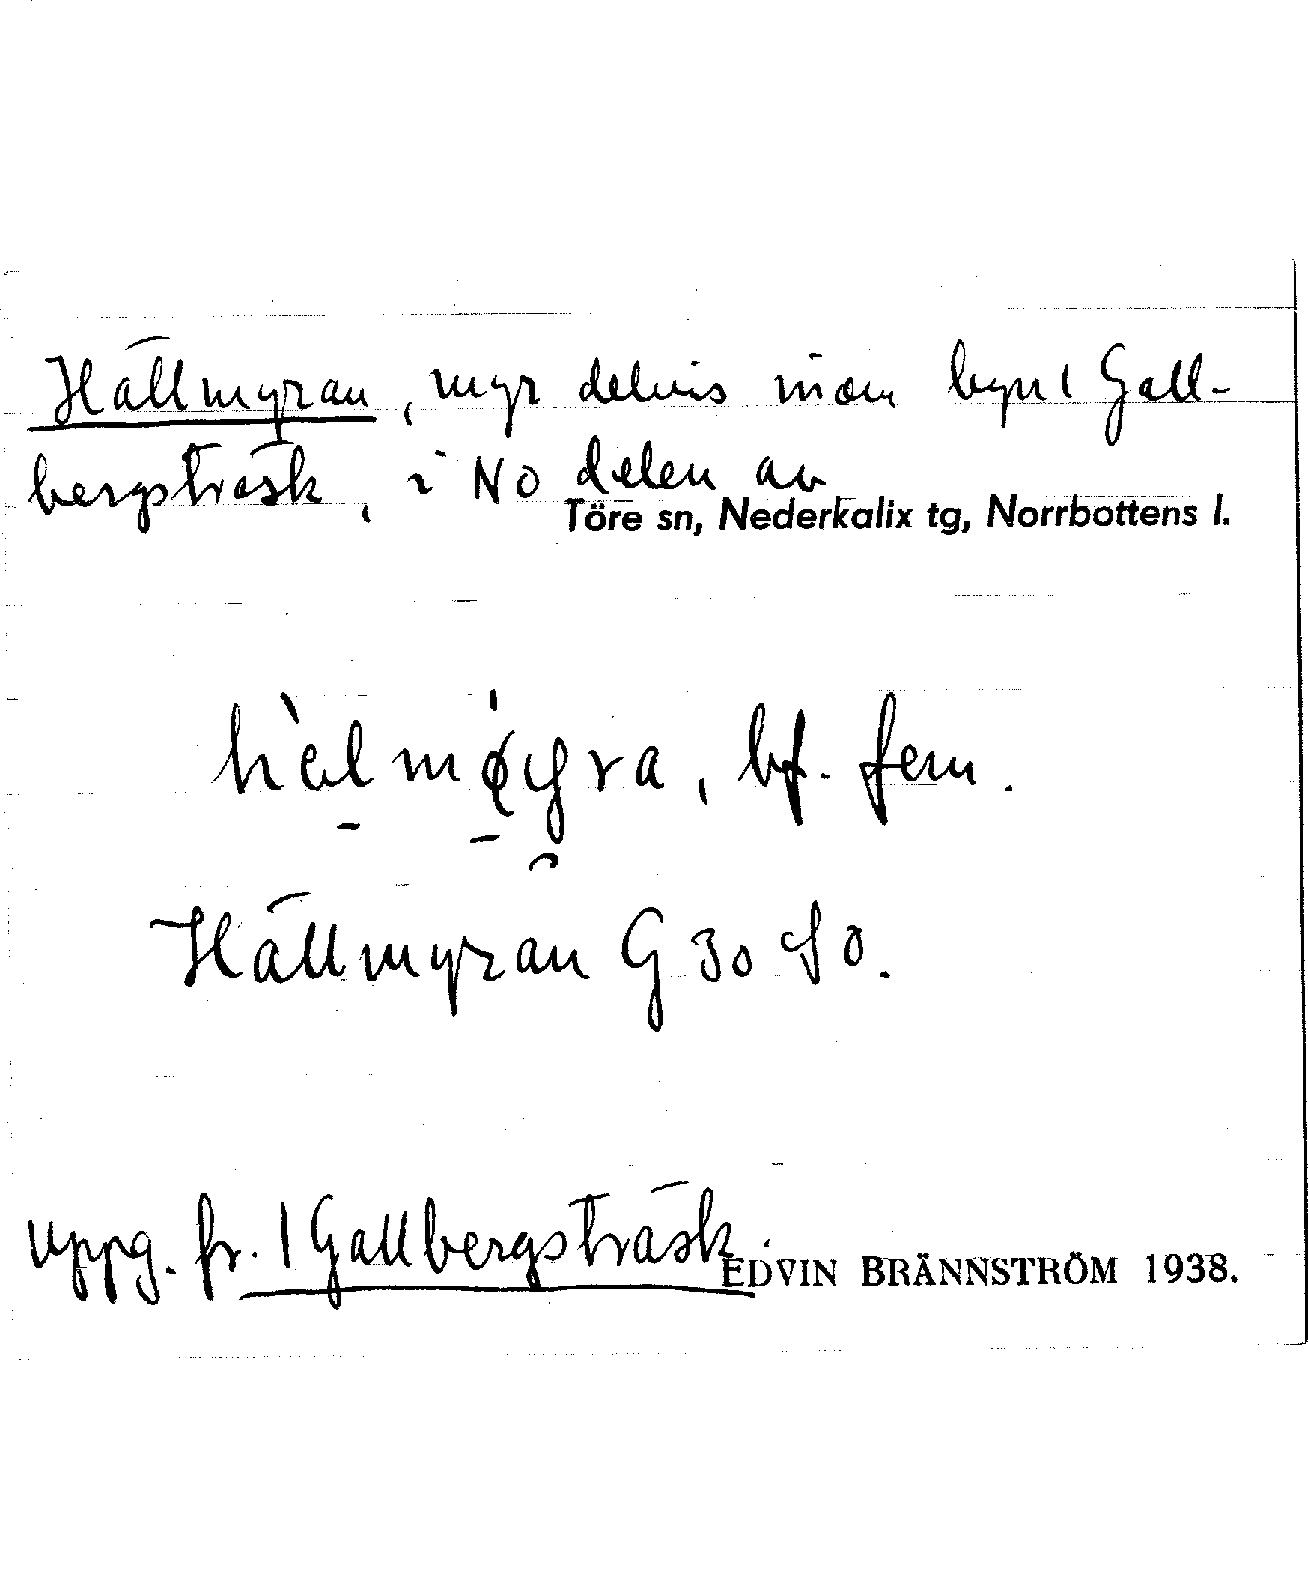 Hällmyran, myr delvis inom byn 1 Gall-
bergsträsk, i NO delen av
Töre sn, Nederkalix tg, Norrbottens l.
bf. fem.
Hällmyran G 30 SO.
uppg. fr. 1 Gallbergsträsk.
EDVIN BRÄNNSTRÖM 1938.